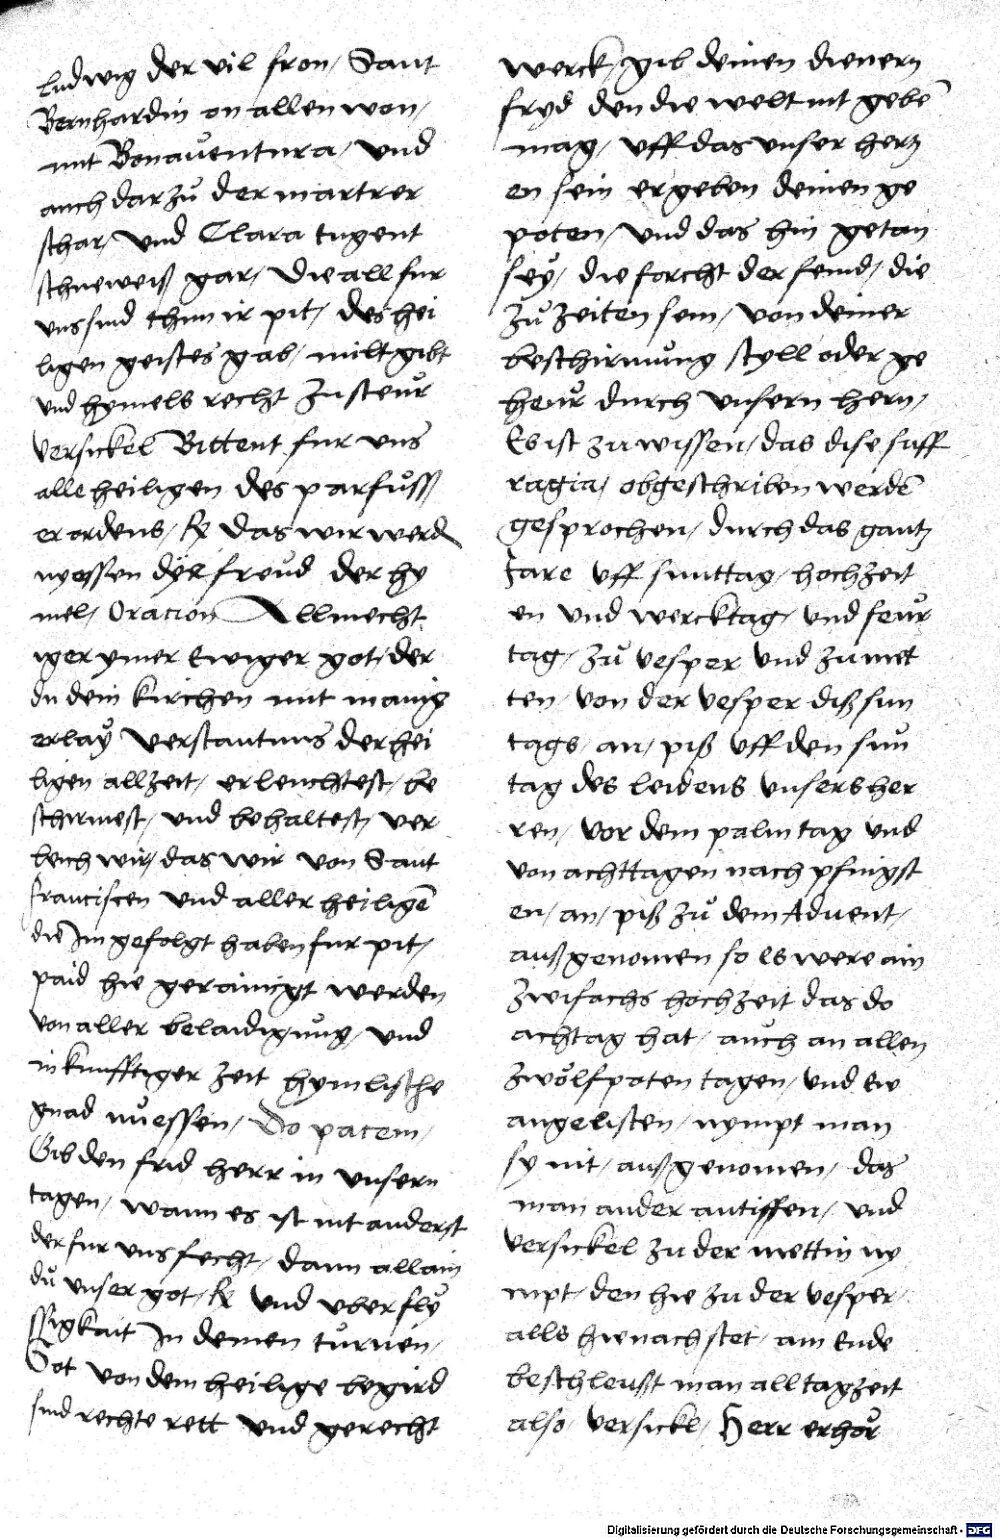 ludwig der vil fron / Sant
Bernhardin on allen won /
mit Bonaventura / vnd
auch darzů der martrer
schar / vnd Clara tugent
schneweiß gar / die all fur
vns sind thun ir pit / des hei
ligen geistes gab / milt gibt
vnd hymels recht zu steůr
versickel Bittent fur vns
alle heiligen des parfůss
er ordens / ℟ Das wir werd
nyessen dÿe freůd der hy
mel / Oracion Allmecht
iger ymer Ewiger got / der
du dein kirchen mit manig
erlaÿ verstantnus der hei
ligen allzeit / erleuchtest / be
schirmest / vnd behaltest / ver
leich wir / das wir von Sant
franciscen vnd aller heiligē
die Im gefolgt haben fur pit /
paid hie gerainigt werden
von aller belaidigůng / vnd
in kunfftiger zeit hymlische
gnad nůessen / Do pacem /
Gib den frid herr in vnsern
tagen / wann es ist nit anderst
der fur vns fecht / dann allain
dů vnser got / ℟ vnd vberflÿ
ssigkait In deinen tůrnen /
Got von dem heilige begird
sind rechte rett vnd gerecht
werck / gib deinen dienern
fryd den die welt nit gebē
mag / vff das vnser hertz
en sein ergeben deinen ge
poten / vnd das hin getan
seÿ / die forcht der feind / die
zů zeiten sein / von deiner
beschirmůng styll oder ge
heůr durch vnsern hern /
Es ist zu wissen / das dise suff
ragia / obgeschriben werdē
gesprochen / durch das gantz
Jare vff sunttag / hochzeit
en vnd wercktag / vnd feůr
tag / zů vesper vnd zu met
ten / von der vesper diß sun
tags / an / piß vff den sůn
tag des leidens vnsers her
ren / vor dem palm tag vnd
von achttagen nach pfingst
en / an / piß zů dem Advent /
außgenomen so es were ain
zwifachs hochzeit das do
achtag hat / auch an allen
zwölfpoten tagen / vnd Ew
angelisten / nympt man
sy nit / außgenomen / das
man ander antiffen / vnd
versickel zu der mettin ny
mpt / den hie zu der vesper /
alls hienach stet / am Ende
beschleusst man all tagzeit
also / versickl / Herr erhör
Digitalisierung gefördert durch die Deutsche Forschungsgemeinschaft - DFG